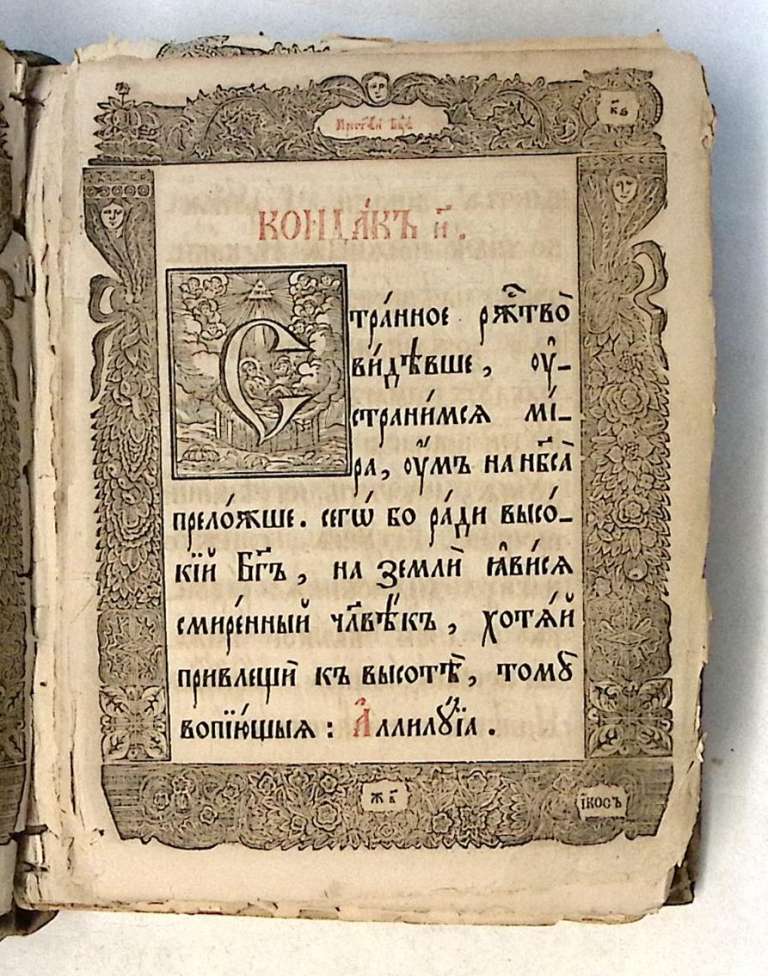 Прест҃ѣй Бц҃ѣ
к҃в
КОНДА́КЪ и҃.
Стра́нное рж҇тво̀
ви́дѣвше, оу҆-
страни́мсѧ мі́-
ра, оу҆́мъ на нб҃са̀
прело́жше. сегѡ̀ бо ра́ди высо́-
кїй Бг҃ъ, на землѝ ꙗ҆ви́сѧ
смире́нный чл҃вѣ́къ, хотѧ́й
привлещѝ къ высотѣ̀, томꙋ̀
вопїю́щыѧ : А҆ллилꙋ́їа .
ІКОСЪ